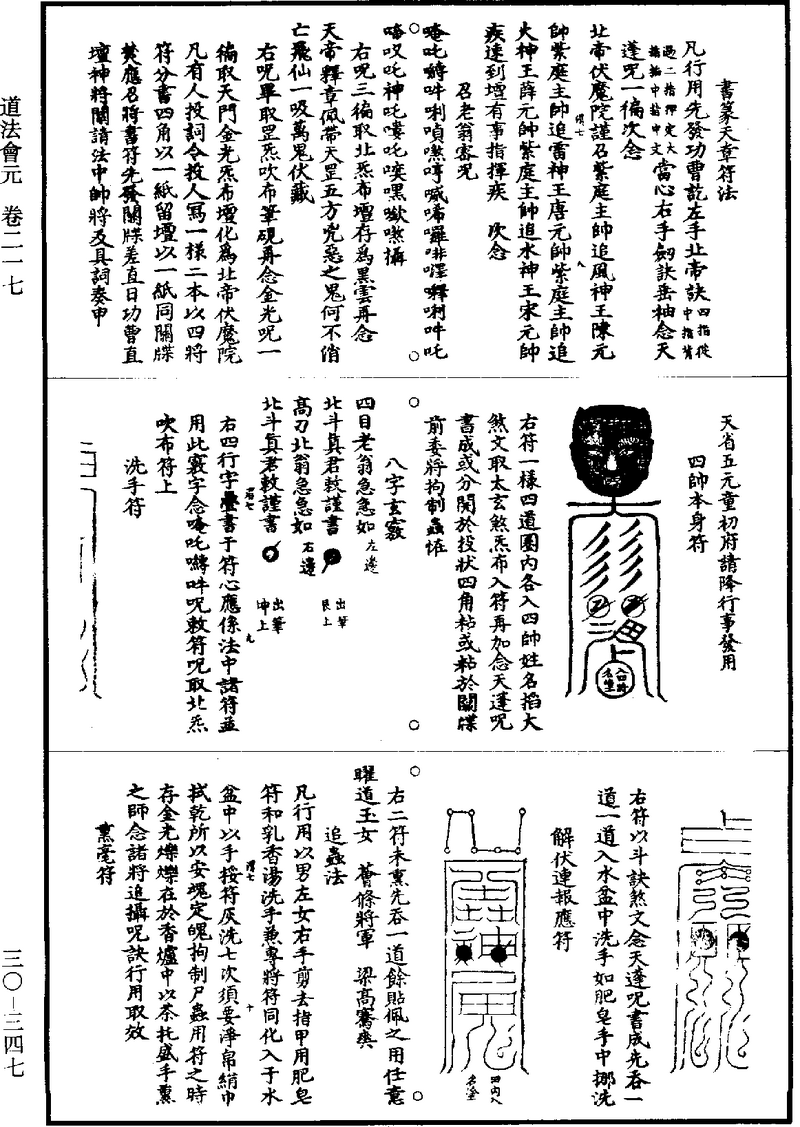 道法會元　卷二一七
三〇－三四七
書篆天章符法
凡行用先發功曹訖左手北帝訣四指從中指背
過二指押定大指掐中指中文當心右手劍訣岳袖念天
蓬呪一徧次念
北帝伏魔院謹召紫庭主帥追風神王陳元
帥紫庭主帥追雷神王唐元帥紫庭主帥追
火神王薛元帥紫庭主帥追水神王宋元帥
疾速到壇有事指揮疾　次念
召老翁密呪
右呪三徧取北炁布壇存為黑雲再念
天帝釋章佩帶天罡五方兇惡之鬼何不消
亡飛仙一吸萬鬼伏藏
右呪畢取罡炁吹布筆硯再念金光呪一
徧取天門金光炁布壇化為北帝伏魔院
凡有人投詞令投人寫一樣二本以四將
符分書四角以一紙留壇以一紙同關牒
焚應召將書符先發關牒差直日功曹直
壇神將關請法中帥將及具詞奏申
天省五元童初府請降行事發用
四帥本身符
右符一樣四道圈內各入四帥姓名掐大
煞文取太玄煞炁布入符再加念天蓬呪
書成或分開於投狀四角粘或粘於關牒
前委將拘制蟲恠
八字玄竅
四目老翁急急如左邊
北斗真君敕謹書　出筆艮上
高刃北翁急急如右邊
北斗真君敕謹書　出筆坤上
右四行字疊書于符心應係法中諸符並
用此竅字念唵吒嚩吽呪敕符呪取北炁
吹布符上
洗手符
右符以斗訣煞文念天蓬呪書成先吞一
道一道入水盆中洗手如肥皂手中挪洗
解伏連報應符
右二符未熏先吞一道餘貼佩之用任意
曜道玉女　薈條將軍　梁高騫奭
追蟲法
凡行用以男左女右手剪去指甲用肥皂
符和乳香湯洗手兼專將符同化入于水
盆中以手挼符灰洗七次須要淨帛絹巾
拭乾所以安魂定魄拘制尸蟲用符之時
存金光爍爍在於香爐中以茶托盛手熏
之師念諸將追攝呪訣行用取效
熏毫符